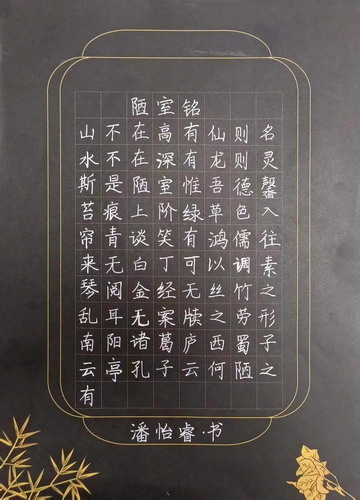 陋室铭
山不在高有仙则名
水不在深有龙则灵
斯是陋室惟吾德馨
苔痕上阶绿草色入
帘青谈笑有鸿儒往
来无白丁可以调素
琴阅金经无丝竹之
乱耳无案牍之劳形
南阳诸葛庐西蜀子
云亭孔子云何陋之
有
潘怡睿·书